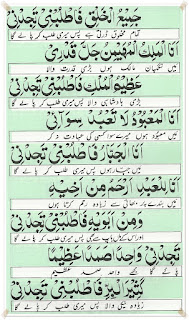 جَمِيْعِ الْخَلْقِ فَاطْلُبْنِيْ تَجِدْنِيْ
تمام مخلوق رزق ہے پس میری طلب کر پا لے گا
اَنَا الْمَلِكُ الْمُهَيْمِنُ جَلَّ قَدْرِيْ
میں نگہبان مالک ہوں بڑی قدرت والا
عَظِيْمُ الْمُلْكِ فَاطْلُبْنِيْ تَجِدْنِيْ
بڑی بادشاہی والا پس میری طلب کر پا لے گا
اَنَا الْمَعْبُوْدُ لَا تَعْبُدْ سِوَائِيْ
میں معبود ہوں میرے سوا کسی کی عبادت نہ کر
اَنَا الْجَبَّارُ فَاطْلُبْنِيْ تَجِدْنِيْ
میں جبار ہوں پس میری طلب کر پا لے گا
اَنَا لِلْعَبْدِ اَرْحَمُ مِنْ اَخِيْهِ
میں بندے پر بھائی سے زیادہ رحم کرتا ہوں
وَمِنْ اَبَوَيْهِ فَاطْلُبْنِيْ تَجِدْنِيْ
اور اس کے ماں باپ سے بھی پس میری طلب کر پا لے گا
تَجِدْنِيْ وَاحِدًا صَمَدًا عَظِيْمًا
پا لے گا مجھے واحد صمد عظیم
كَثِيْرَ الْبِرِّ فَاطْلُبْنِيْ تَجِدْنِيْ
زیادہ نیکی والا پس میری طلب کر پا لے گا